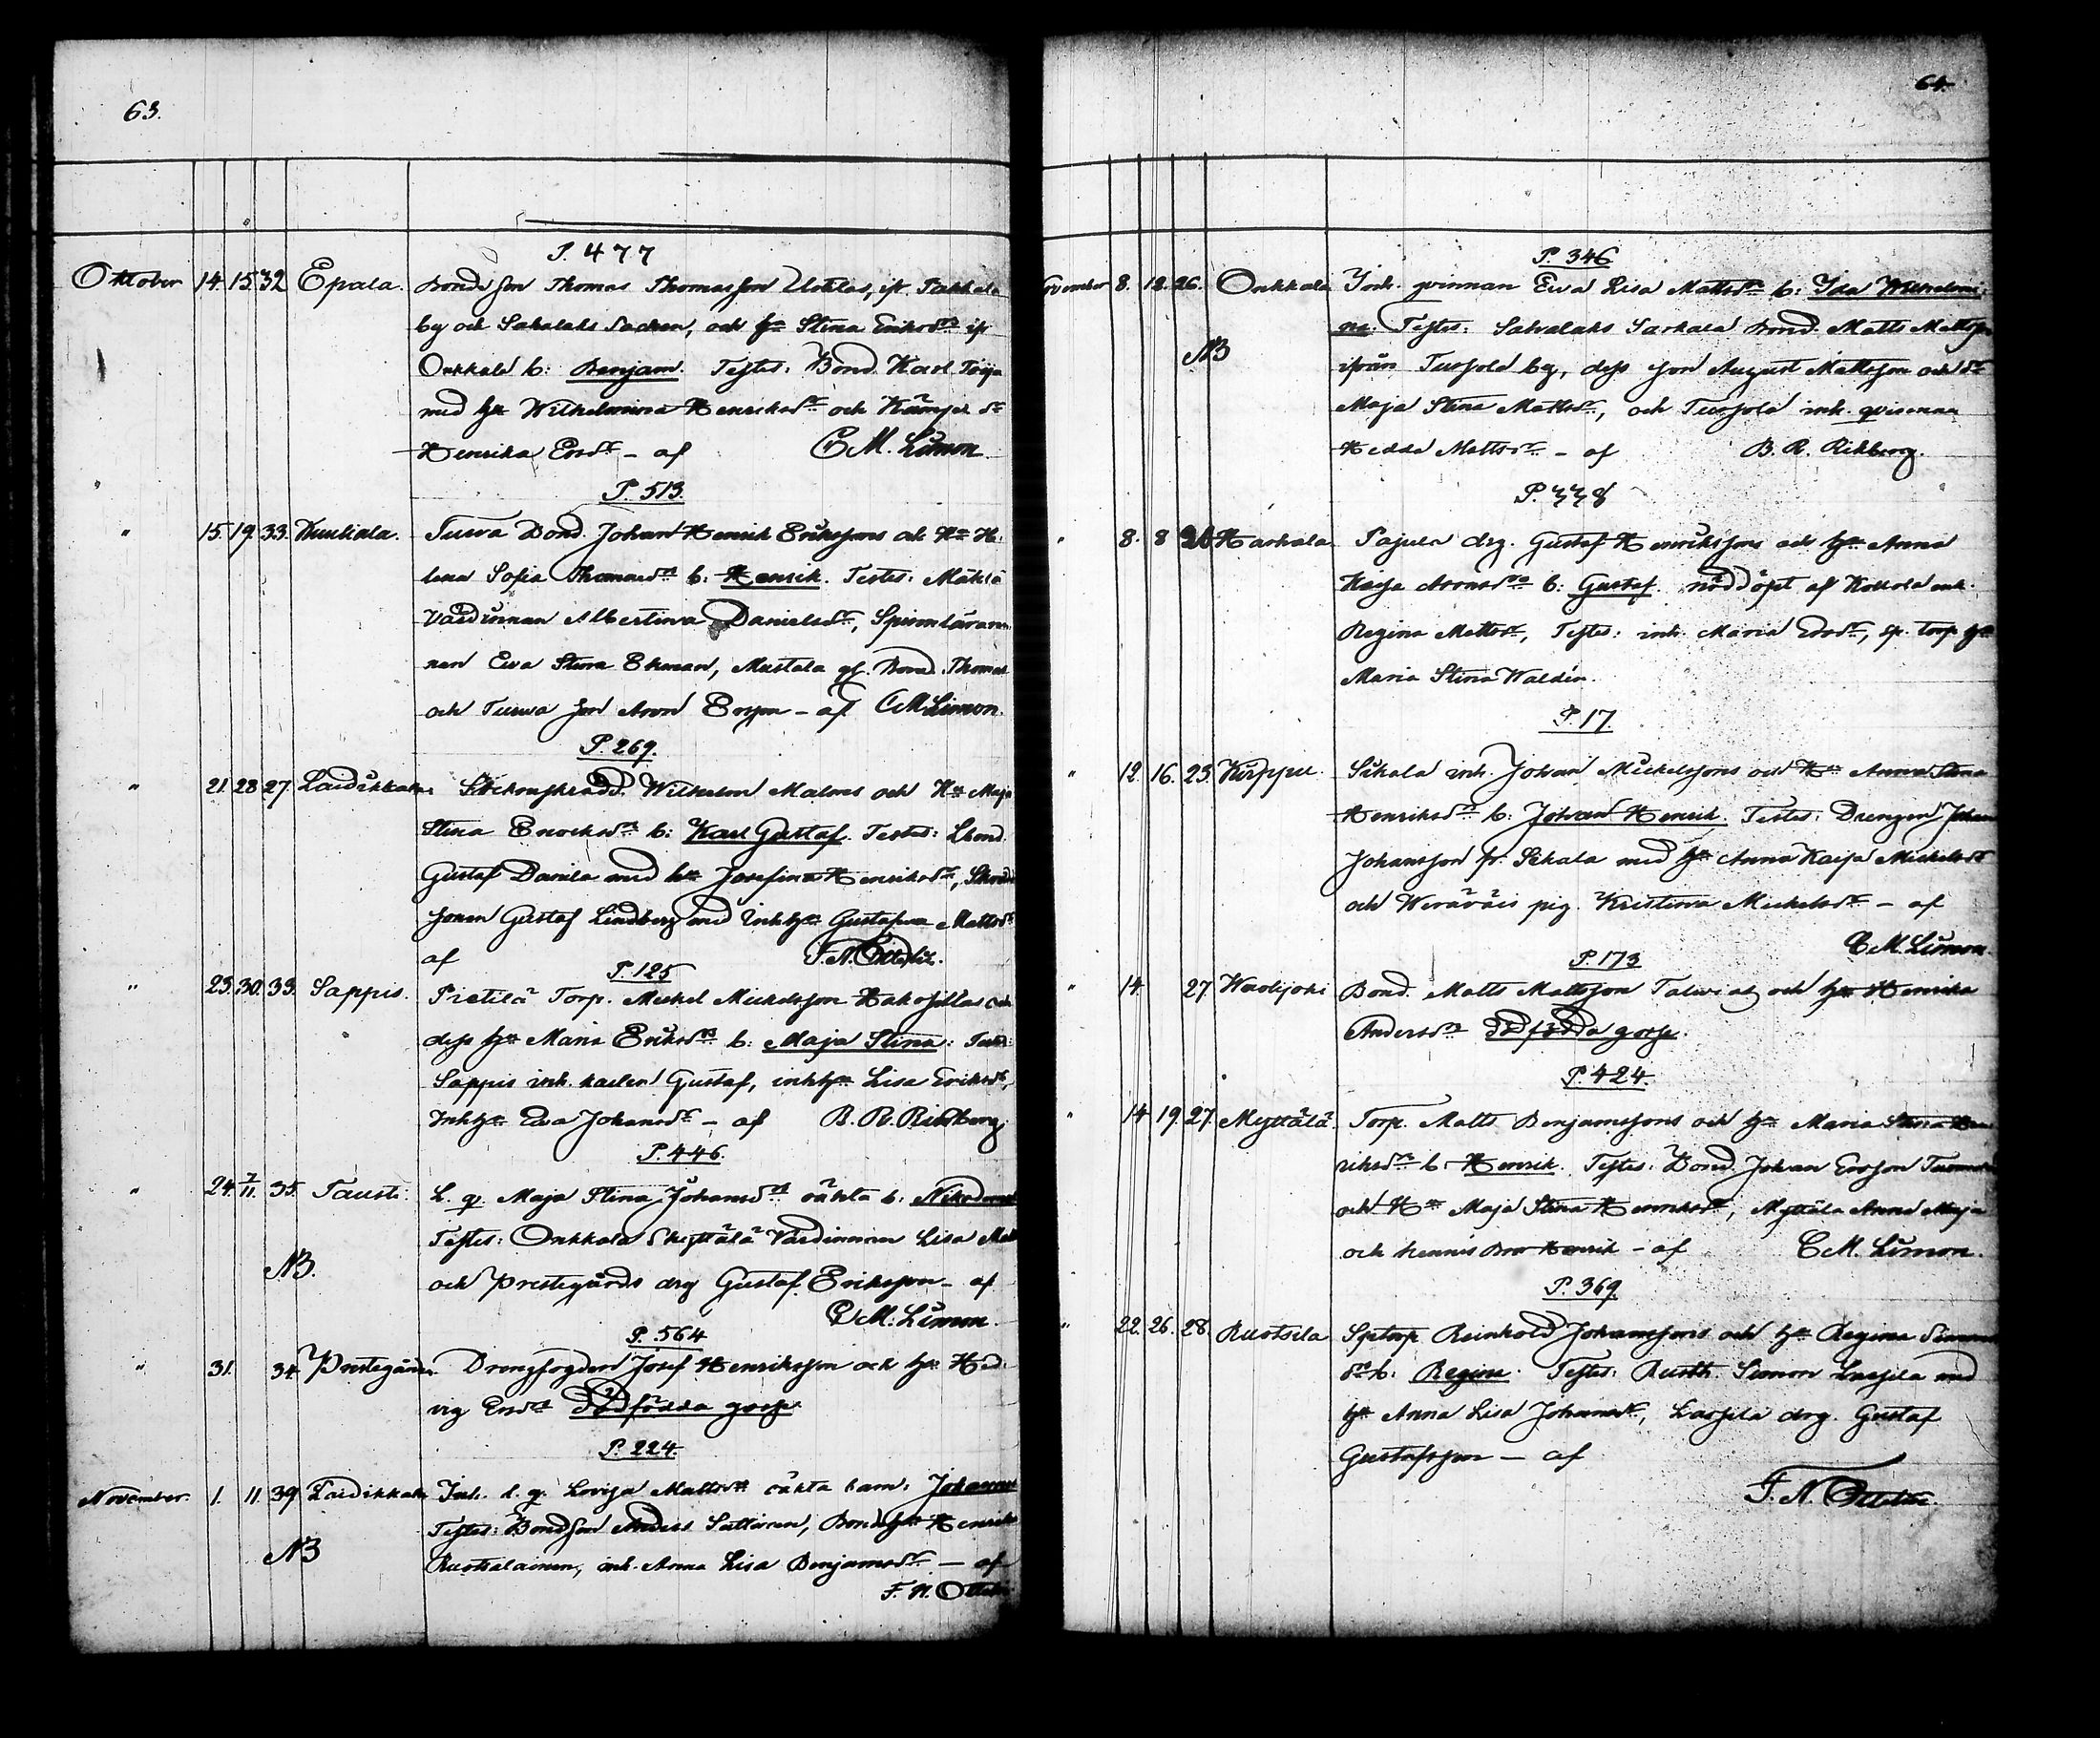 63.
P. 477
Oktober 14. 15. 32 Epala. Bonde son Thomas Thomasson Uotilas, ifr. Pakkala
by och Sahalaks Socken, och h:u Stina Eriksd:r ifr
Onkkala b: Benjam. Testes: Bond. Karl Töija
med h:u Wilhelmina Henriksd:r och Kämpe d:r
Henrika Ersd:r – af C M. Limon
P. 513.
" 15. 19. 33. Kuuliala. Turva Bond. Johan Henrik Erikssons och H:u He
lena Sofia Thomasd:r b: Henrik. Testes: Mäkelä
Värdinnan Albertina Danielsd:r, Spinnläraren
nan Eva Stina Ekman, Mustala gf. Bond. Thomas
och Turva son Aron Ersson – af C M Limon.
P. 269.
" 21. 28 27. Laidikkala Wilhelm Malms och H:u Maja
Stina Enocksd:r b: Karl Gustaf. Testes:
Gustaf Danila med h:u Josefina Henriksd:r,
sonen Gustaf Lindberg med Inhh:u Gustafva Mattsd:r
af F. N.
P. 125
" 23. 30. 33. Sappis. Pietilä Torp. Mickel Mickelsson Hakosillas och
dess h:u Maria Eriksd:r b: Maja Stina: Test:
Sappis inh. karlen Gustaf, inhh:u Lisa Eriksd:r,
Inhh:u Eva Johansd:r – af B. R. Rikberg.
P. 446.
" 24. 7/11. 35. Tausti. L. q. Maja Stina Johansd:r oäkta b: Nikodemus
Testes: Onkkala Skyttälä Värdinnan Lisa Matt
NB. och Prestegårds drg Gustaf Eriksson – af
C M. Limon.
P. 564
" 31. 34. Prestegården. Drengfogden Josef Henriksson och h:u Hed
vig Ersd:r Dödfödda gosse
P. 224.
November. 1. 11. 39 Laidikkala Inh. l. q. Lovisa Mattsd:r oäkta barn: Johannes
Testes: Bondson Anders Suttinen, Bondeh:u Henrika
NB Ruotsalainen, inh. Anna Lisa Benjamsd:r – af
F. N.
64.
P. 346
November 8. 12. 26. Onkkala Inh. qvinnan Eva Lisa Mattsd:r b: Ida Wilhelmi
na: Testes: Sahalaks Sarkala Bond. Matts Mattsson
NB ifrån Tursola by, dess son August Mattsson och d:r
Maja Stina Mattsd:r, och Tursola inh. qvinnan
Hedda Mattsd:r – af B. R. Rikberg.
P. 338
" 8. 8 26 Harhala Pajula drg. Gustaf Henrikssons och h:u Anna
Kaja Aronsd:r b: Gustaf. nöddöpt af Kokkola enk.
Regina Mattsd:r, Testes: inh. Maria Edvd:r, sp. torp h:u
Maria Stina Waldén.
P. 17.
" 12. 16. 23. Kirppu. Sikala inh. Johan Mickelssons och H:u Anna Stina
Henriksd:r b: Johan Henrik. Testes: Drengen Johan
Johansson fr. Sikala med h:u Anna Kaisa Mickelsd:r
och Wiräväis pig. Kristina Mickelsd:r – af
C M. Limon.
P. 173
" 14. 27. Wuolijoki Bond. Matts Mattsson Talvia och h:u Henrika
Andersd:r Dödfödda gosse.
P. 424.
" 14. 19. 27. Myttälä. Torp. Matts Benjamssons och h:u Maria Stina Hen
riksd:r b: Henrik. Testes: Bond. Johan Ersson Tuomola
och H:u Maja Stina Henriksd:r, Myttälä Anna Maja
och hennis Bror Henrik – af C M. Limon.
P. 369.
" 22. 26. 28. Ruotsila Sptorp. Reinhold Johanssons och h:u Regina Simons
d:r b: Regina. Testes: Rusth. Simon Lassila med
h:u Anna Lisa Johansd:r, Lassila drg. Gustaf
Gustafsson – af
F. N.